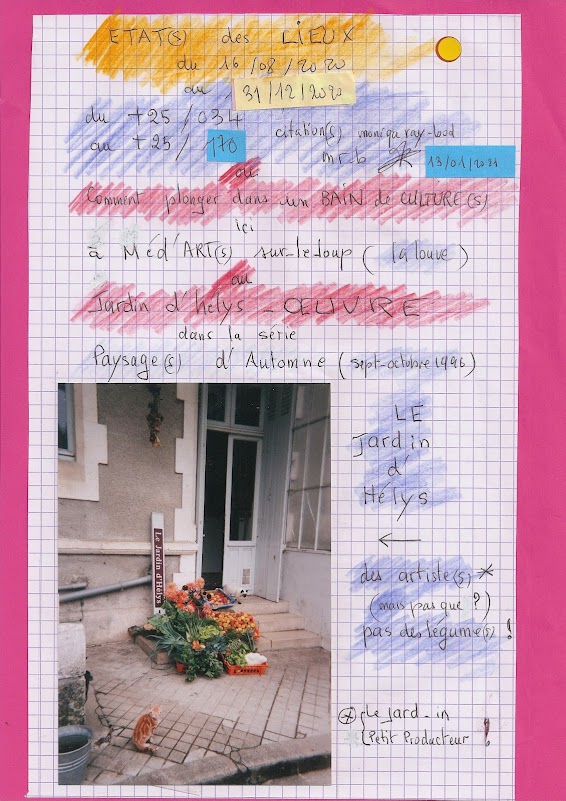 ETAT(s) des LIEUX
du 16/08/2020
au 31/12/2020
du +25/034
au +25/170
citation(s) moniqu ray-bod
mrb
13/01/2021
ou
Comment plonger dans un BAIN de CULTURE(S)
ici
à Méd'ART(s) sur-le-loup (la louve)
au
Jardin d'hélys - OEUVRE
dans la série
Paysage(s) d'Automne (sept-octobre 1996)
LE
Jardin
d'
Hélys
←
des artiste(s) *
(mais pas que ?)
pas des légume(s) !
Le Jardin d'Hélys
* Le Jard-in
Petit Producteur !